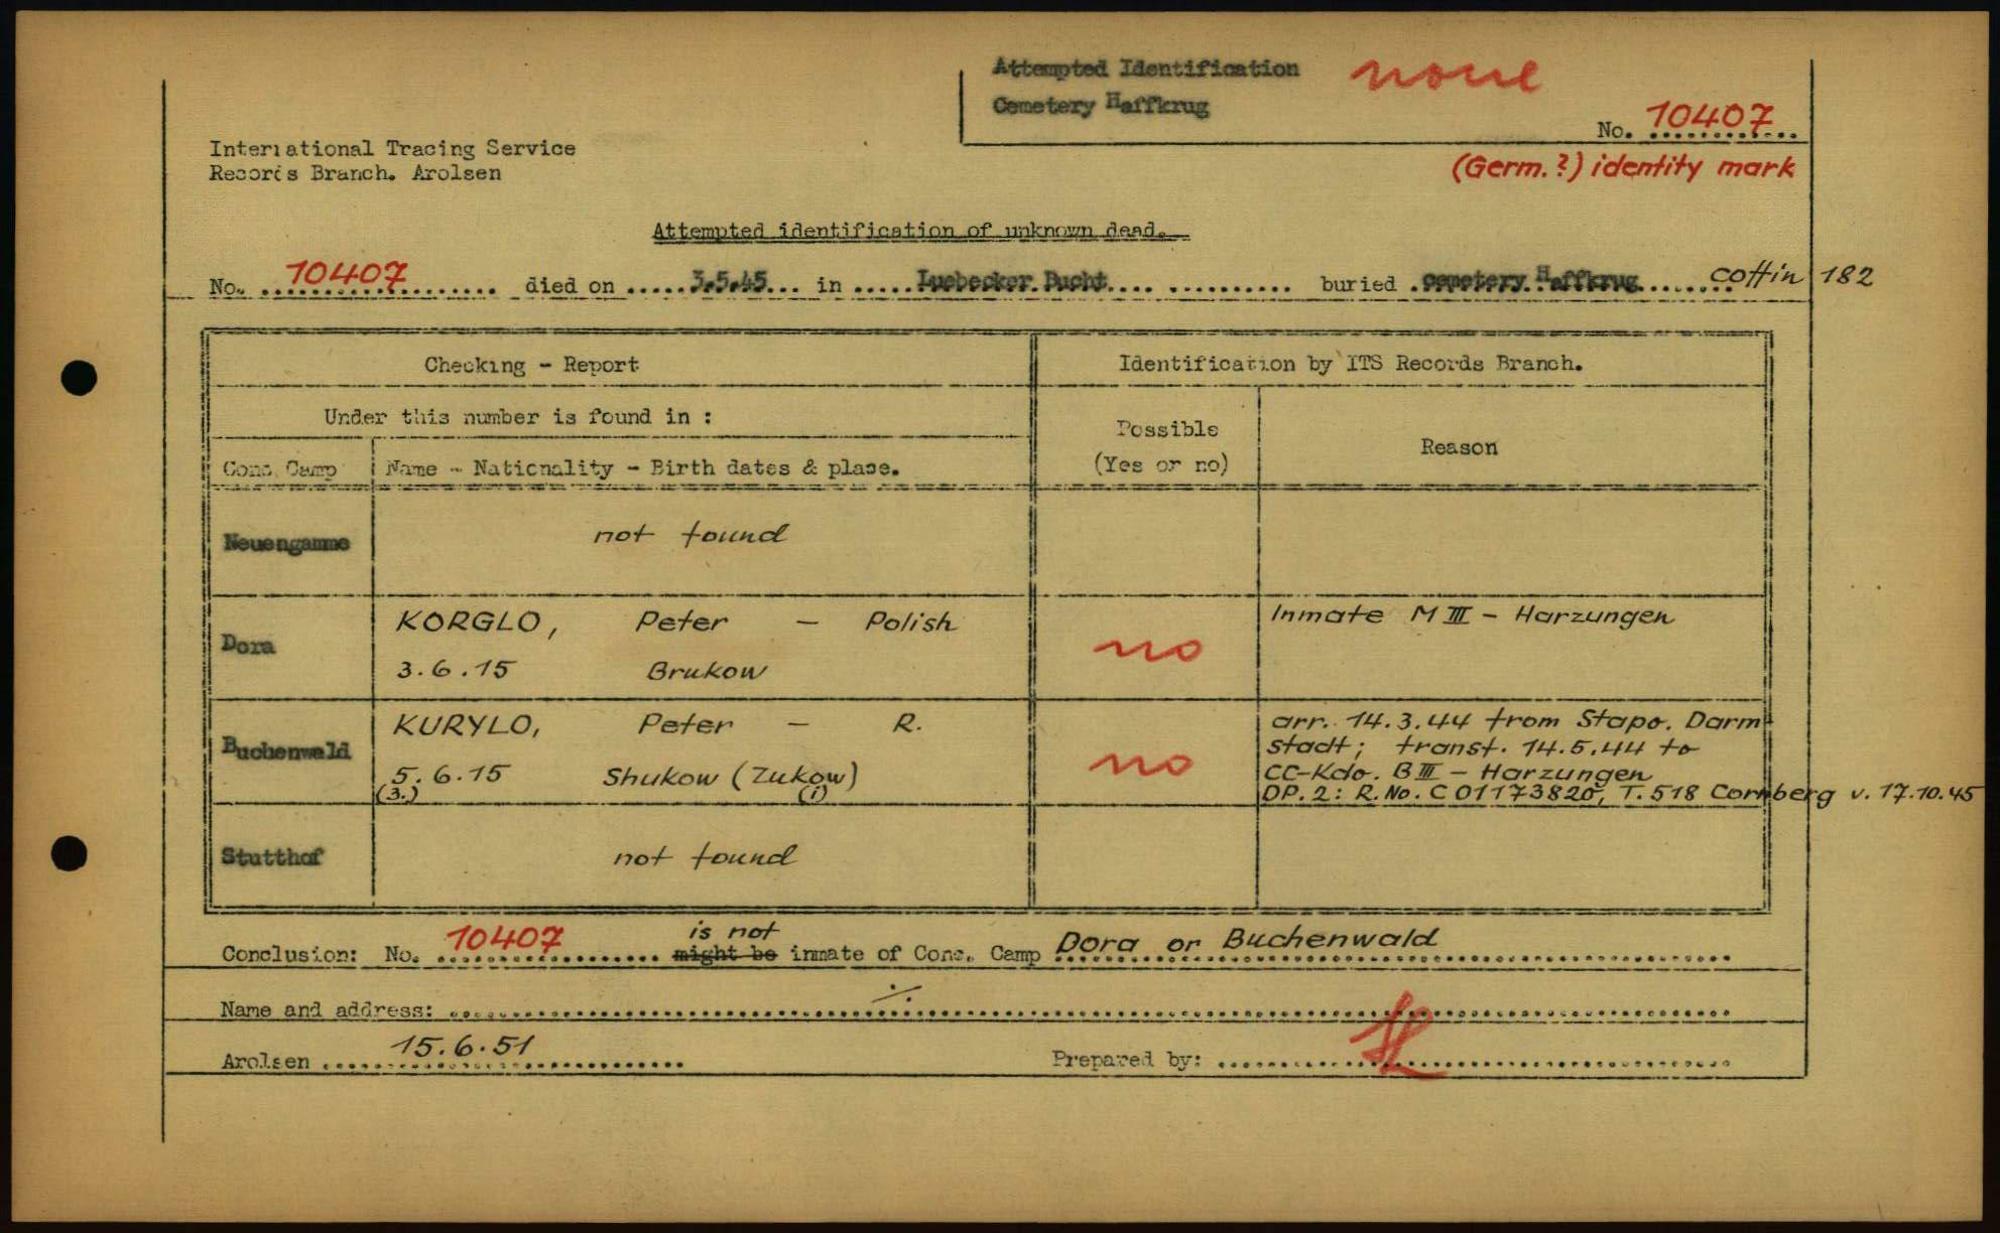 Attempted Identification none
Cemetery Haffkrug
No. 10407
International Tracing Service
Records Branch. Arolsen
(Germ.?) identity mark
Attempted identification of unknown dead.
No. 10407 died on 3.5.45 in Luebecker Bucht buried cemetery Haffkrug coffin 182
Checking - Report
Identification by ITS Records Branch.
Under this number is found in :
Possible
(Yes or no)
Reason
Conc. Camp
Name - Nationality - Birth dates & place.
Neuengamme
not found
Dora
KORGLO, Peter - Polish
3.6.15 Brukow
no
Inmate M III - Harzungen
Buchenwald
KURYLO, Peter - R.
5.6.15 Shukow (Zukow)
(3.) (i)
no
arr. 14.3.44 from Stapo. Darm
stadt; transf. 14.5.44 to
CC-Kdo. B III - Harzungen
DP.2: R.No. C 01173820, T.518 Cornberg v. 17.10.45
Stutthof
not found
Conclusion: No. 10407 might be is not inmate of Conc. Camp Dora or Buchenwald
Name and address: ./.
Arolsen 15.6.51
Prepared by: